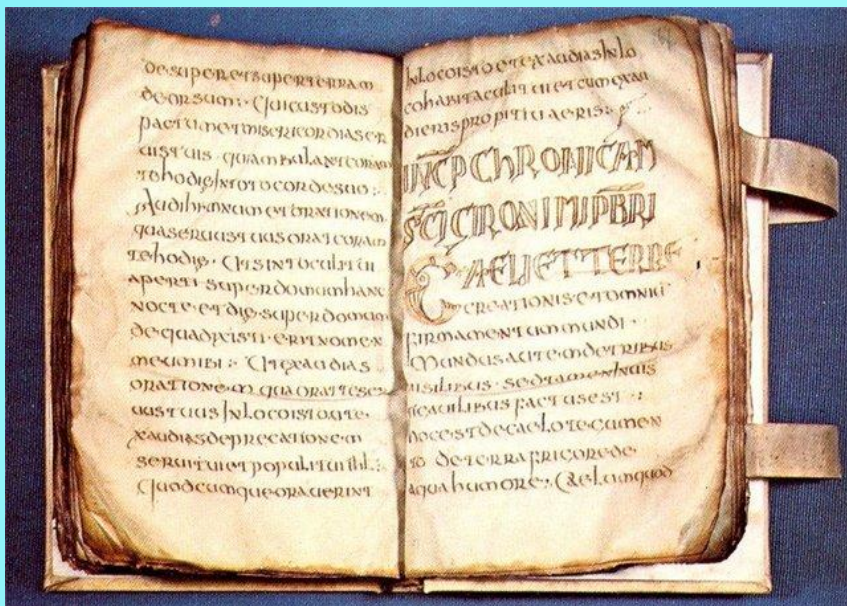 desuper et super terram
deorsum · Qui custodis
pactum et misericordia ser
uis tuis · qui ambulant coram
te hodie In toto corde suo :
Audi hymnum et orationem
qua seruus tuus orat coram
te hodie · Ut sint oculi tui
aperti super domum hanc
nocte et die super domum
de qua dixisti · erit nomen
meum ibi : Ut exaudias
orationem qua orat te ser
uus tuus In loco isto ut e
xaudias deprecationem
serui tui et populi tui ihl :
Quodcumque orauerint
In loco isto et exaudias In lo
co habitaculi tui et cum exau
dieris propitiaueris :
INCP CHRONICAM
SCI GIRONIMI PBRI
CAELI ET TERRE
CREATIONIS et omniu
firmamentum mundi ·
Mundus autem de tribus
uisilibus · sed tamen In uis
factus est :
hoc est de caelo tecumen
to de terra frigore de
aqua humore : Caelum quod